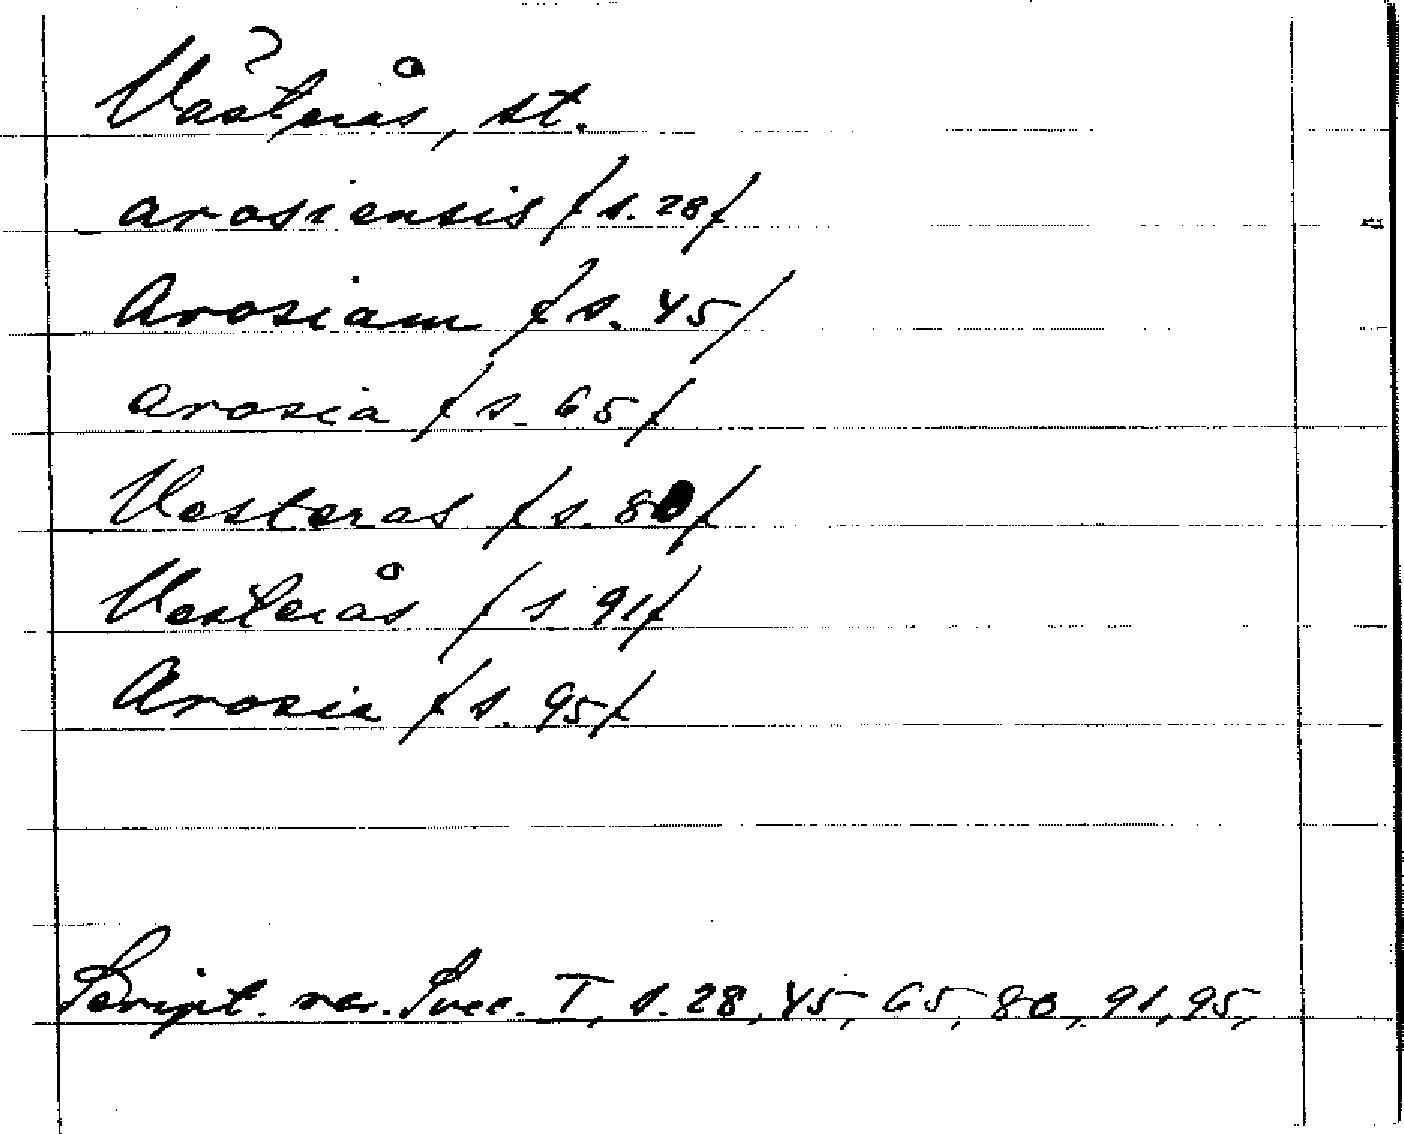 Västerås, st.
arosiensis /s. 28/
Arosiam /s. 45/
arosia /s. 65/
Vesteras /s. 80/
Vesterås /s. 91/
Arosia /s. 95/
Script. rer. Svec. I, s. 28, 45, 65, 80, 91, 95,